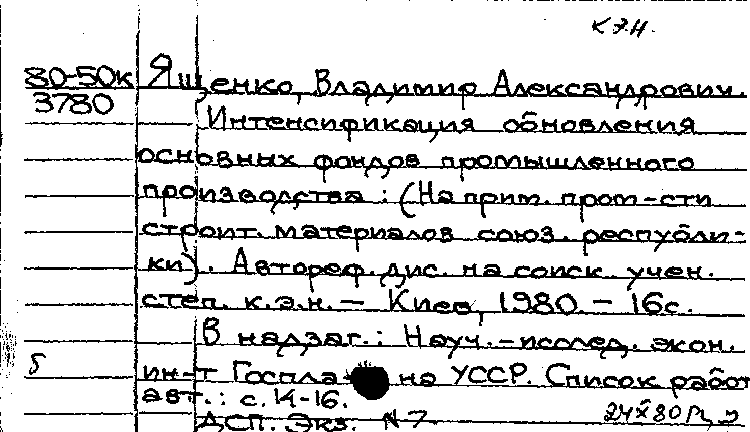 К.Э.Н.
80-50к Ященко, Владимир Александрович.
3780 Интенсификация обновления
основных фондов промышленного
производства : (На прим. пром-сти
строит. материалов союз. республи-
ки). Автореф. дис. на соиск. учен.
степ. к.э.н. — Киев, 1980. — 16с.
В надзаг.: Науч.-исслед. экон.
5 ин-т Госпла на УССР. Список работ
авт.: с. 14-16.
ДСП. Экз. №7. 24 X 80